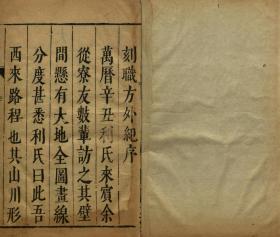 刻職方外紀序
萬曆辛丑利氏來賓余
從寮友數輩訪之其壁
間懸有大地全圖畫線
分度甚悉利氏曰此吾
西來路程也其山川形